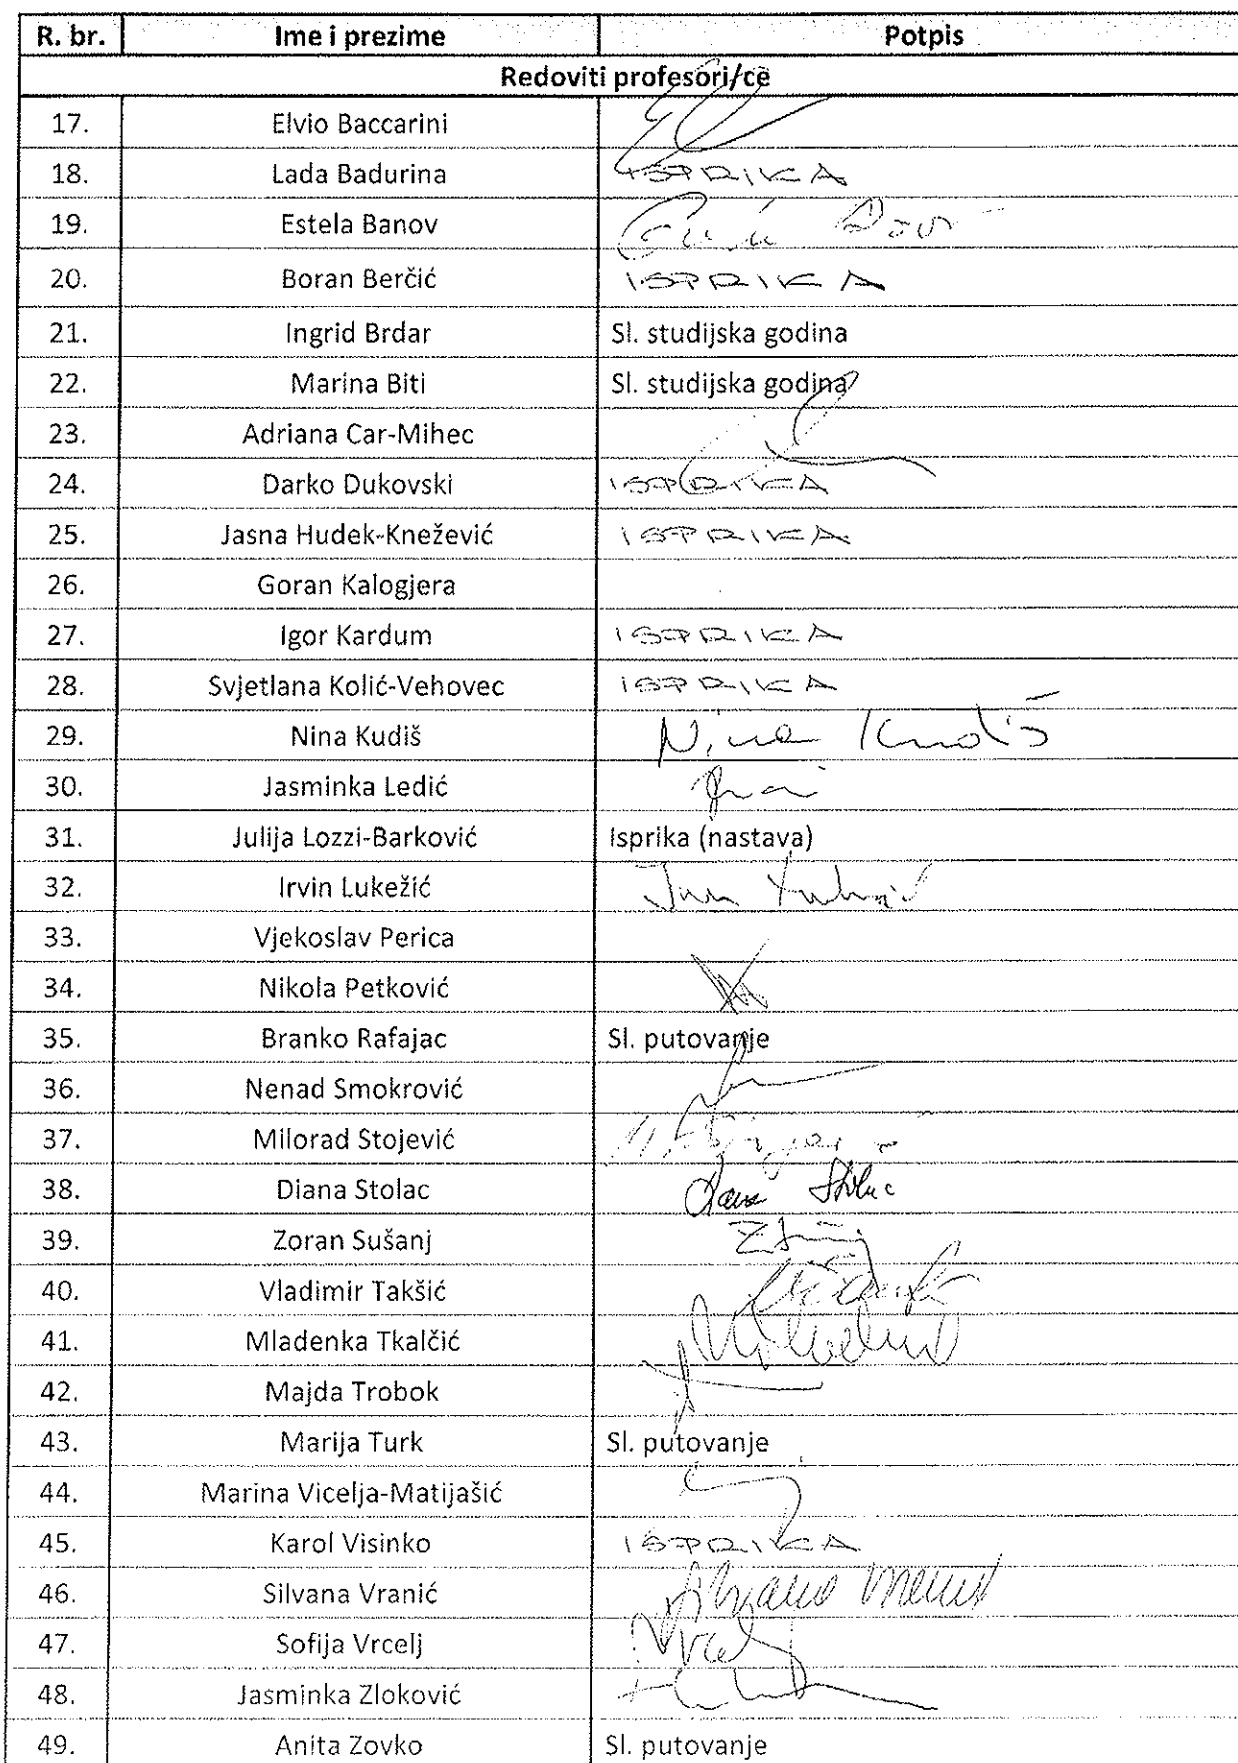 R. br. Ime i prezime Potpis
Redoviti profesori/ce
17. Elvio Baccarini
18. Lada Badurina ISPRIKA
19. Estela Banov
20. Boran Berčić ISPRIKA
21. Ingrid Brdar Sl. studijska godina
22. Marina Biti Sl. studijska godina
23. Adriana Car-Mihec
24. Darko Dukovski ISPRIKA
25. Jasna Hudek-Knežević ISPRIKA
26. Goran Kalogjera
27. Igor Kardum ISPRIKA
28. Svjetlana Kolić-Vehovec ISPRIKA
29. Nina Kudiš Nina Kudiš
30. Jasminka Ledić
31. Julija Lozzi-Barković Isprika (nastava)
32. Irvin Lukežić
33. Vjekoslav Perica
34. Nikola Petković
35. Branko Rafajac Sl. putovanje
36. Nenad Smokrović
37. Milorad Stojević
38. Diana Stolac Diana Stolac
39. Zoran Sušanj
40. Vladimir Takšić
41. Mladenka Tkalčić
42. Majda Trobok
43. Marija Turk Sl. putovanje
44. Marina Vicelja-Matijašić
45. Karol Visinko ISPRIKA
46. Silvana Vranić Silvana Vranić
47. Sofija Vrcelj
48. Jasminka Zloković
49. Anita Zovko Sl. putovanje